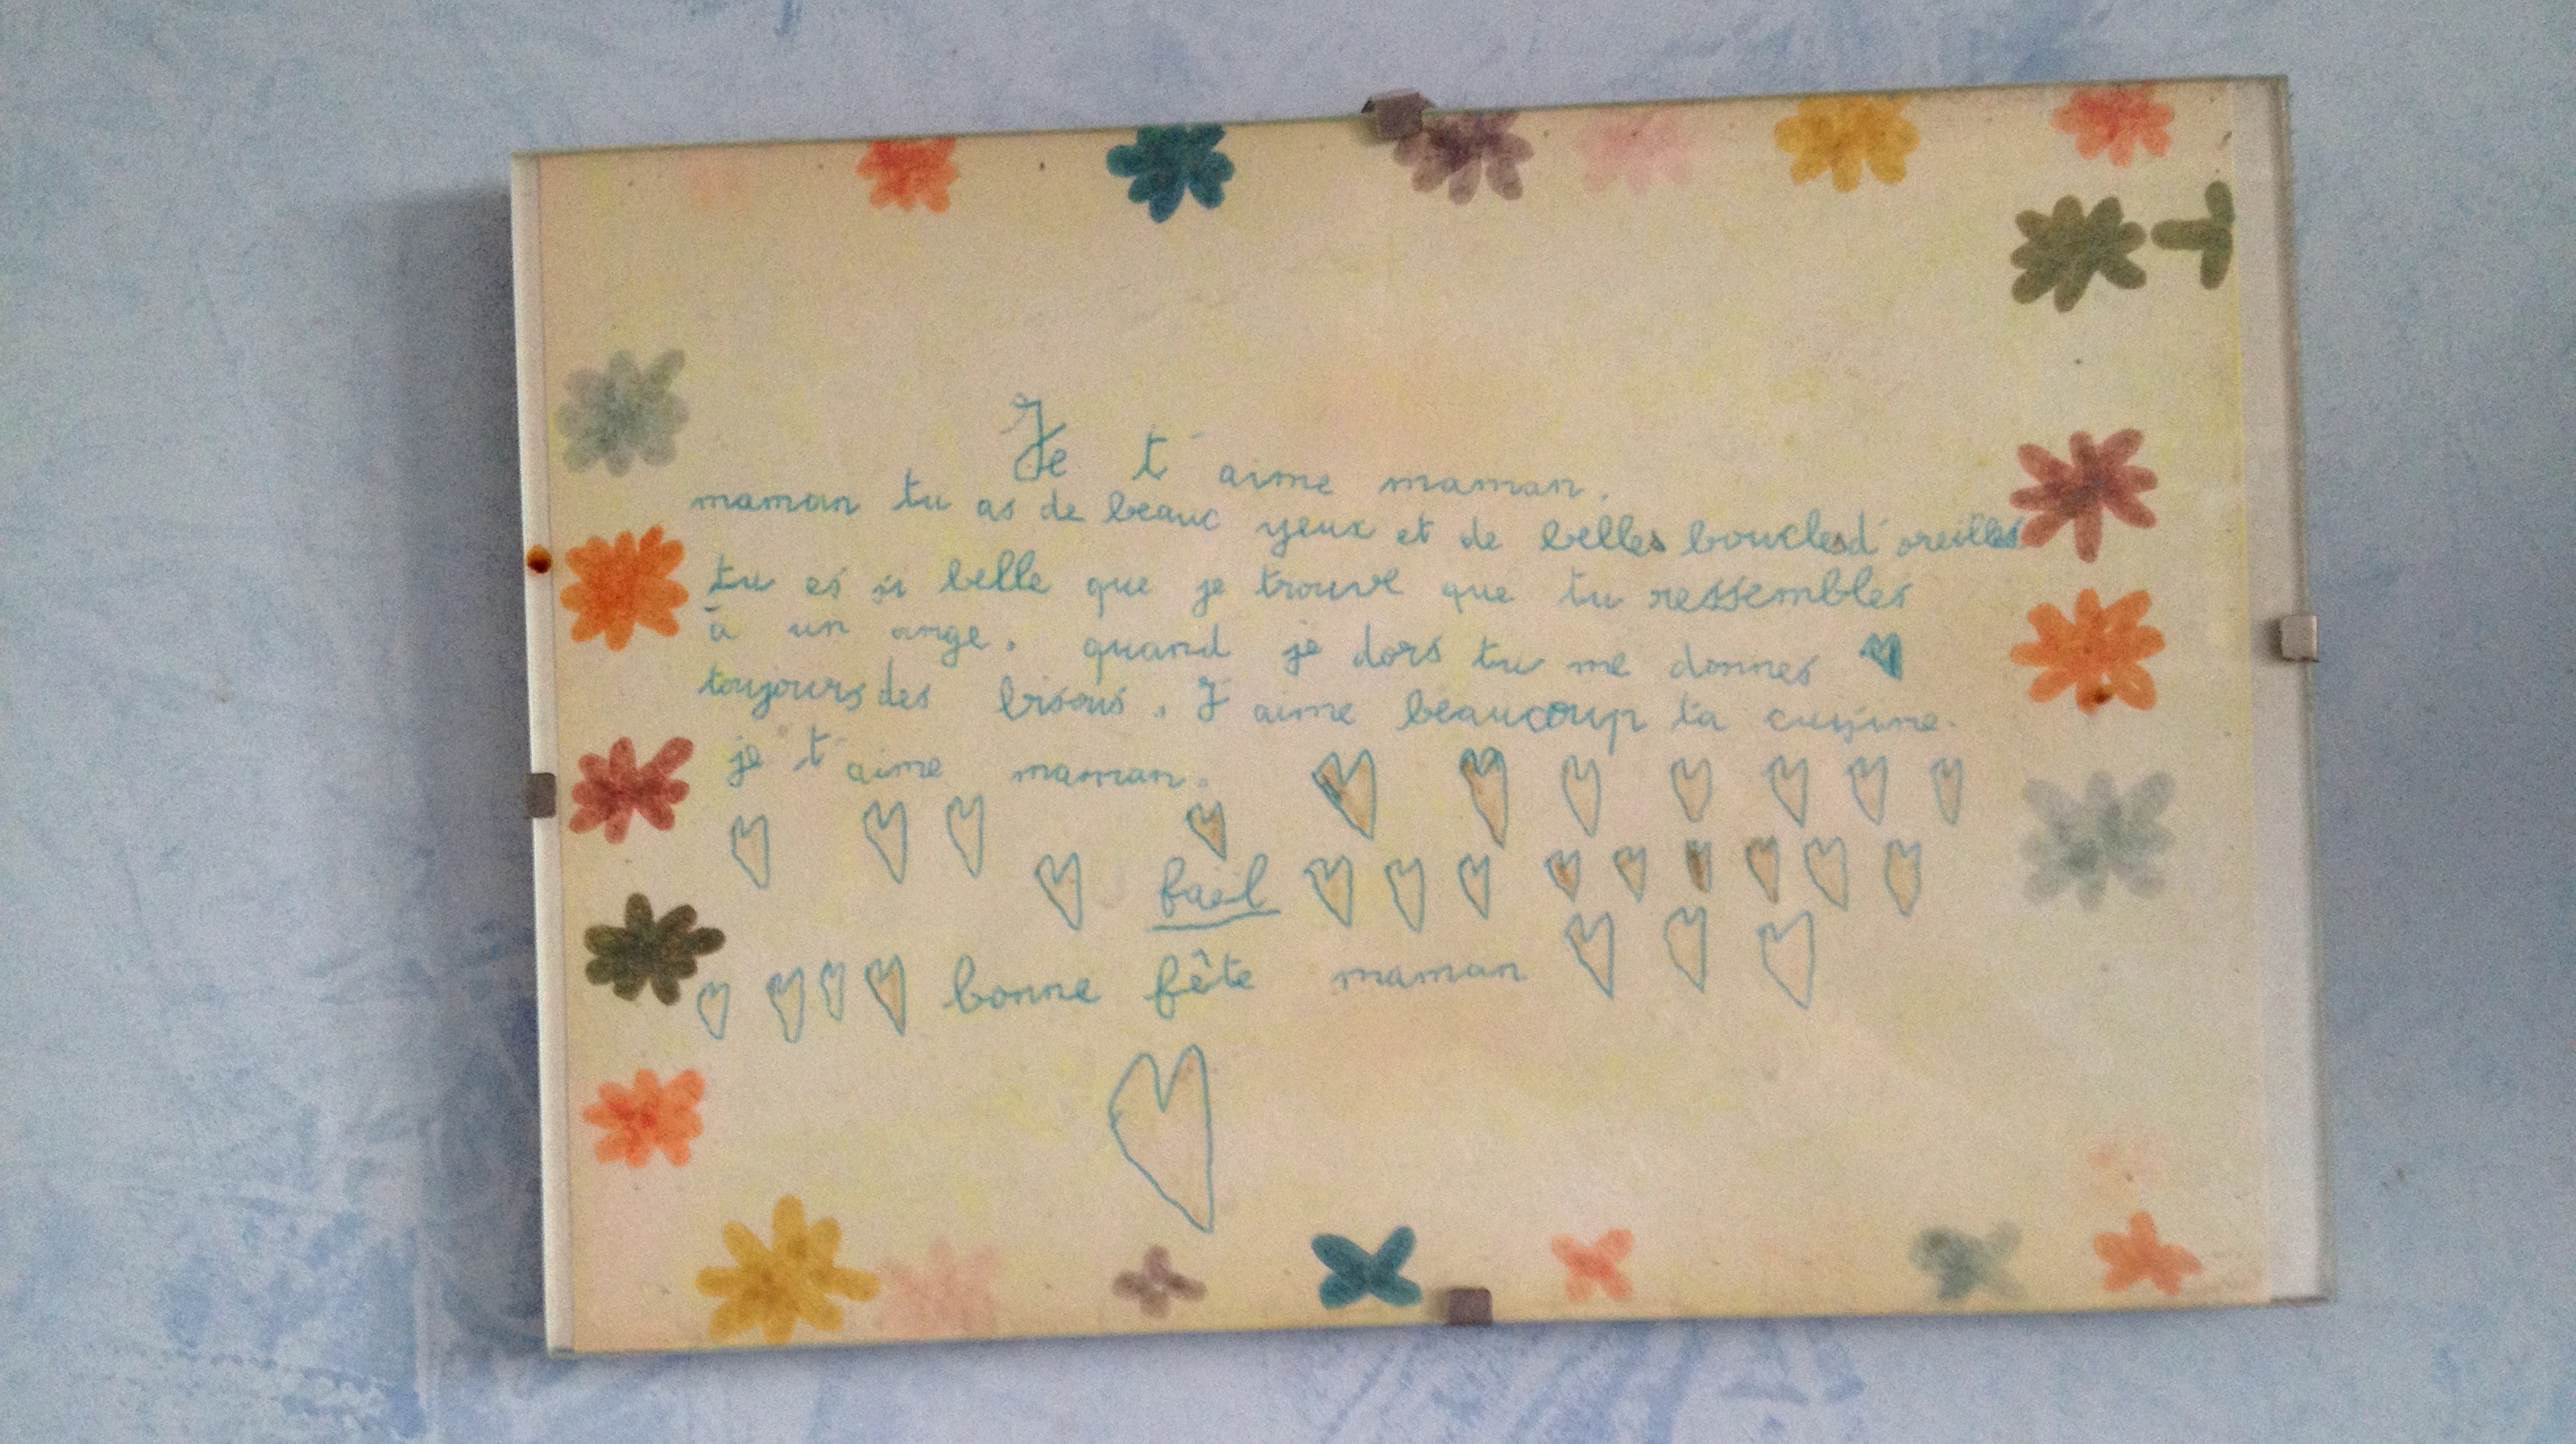 Je t'aime maman.
maman tu as de beaux yeux et de belles boucles d'oreilles
tu es si belle que je trouve que tu ressembles
à un ange. quand je dors tu me donnes
toujours des bisous. J'aime beaucoup ta cuisine.
je t'aime maman.
bonne fête maman